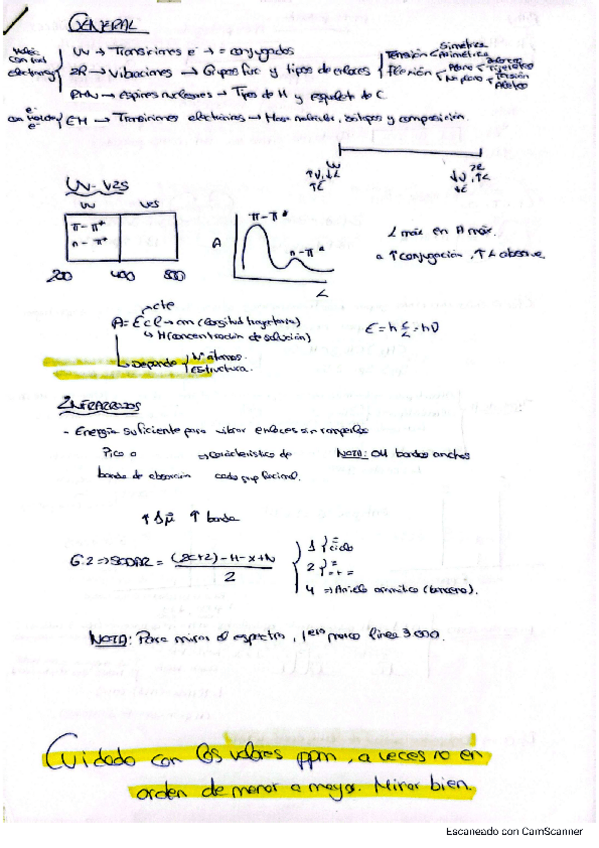 GENERAL
UV → Transiciones e⁻ → = conjugados
IR → Vibraciones → Grupos func y tipos de enlaces
Tensión Simétrica Asimétrica
Flexión Plano No plano Tijereteo Torsión Aleteo
RMN → Espines nucleares → Tipos de H y esqueleto de C
EM → Transiciones electrónicas → Masa molecular, isótopos y composición.
UV IR
UV-VIS
UV VIS
π-π*
n-π*
200 400 800
A π-π* n-π*
λ
λ máx en A máx.
a ↑ conjugación, ↑ λ absorve
cte
A = Ɛcl → m (longitud trayectoria)
↳ M (concentración de solución)
E = h c/λ = hν
Depende Nº átomos estructura.
INFRARROJOS
- Energía suficiente para vibrar enlaces sin romperlos
Pico o ⇒ característico de
banda de absorción cada grup funcional.
NOTA: OH bandas anchas
↑ Δμ ↑ banda
G.I ⇒ SODAR = (2C+2)-H-X+N / 2
1 = ciclo
2 ≡ = + =
4 ⇒ Anillo aromático (benceno).
NOTA: Para mirar el espectro, 1ero marco línea 3000.
Cuidado con los valores ppm, a veces no en
orden de menor a mayor. Mirar bien.
Escaneado con CamScanner